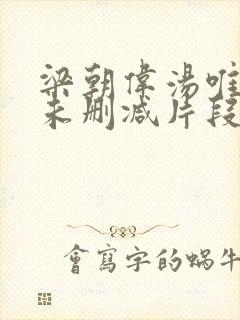 梁朝偉湯唯
未刪減片段
會寫字的蝸牛